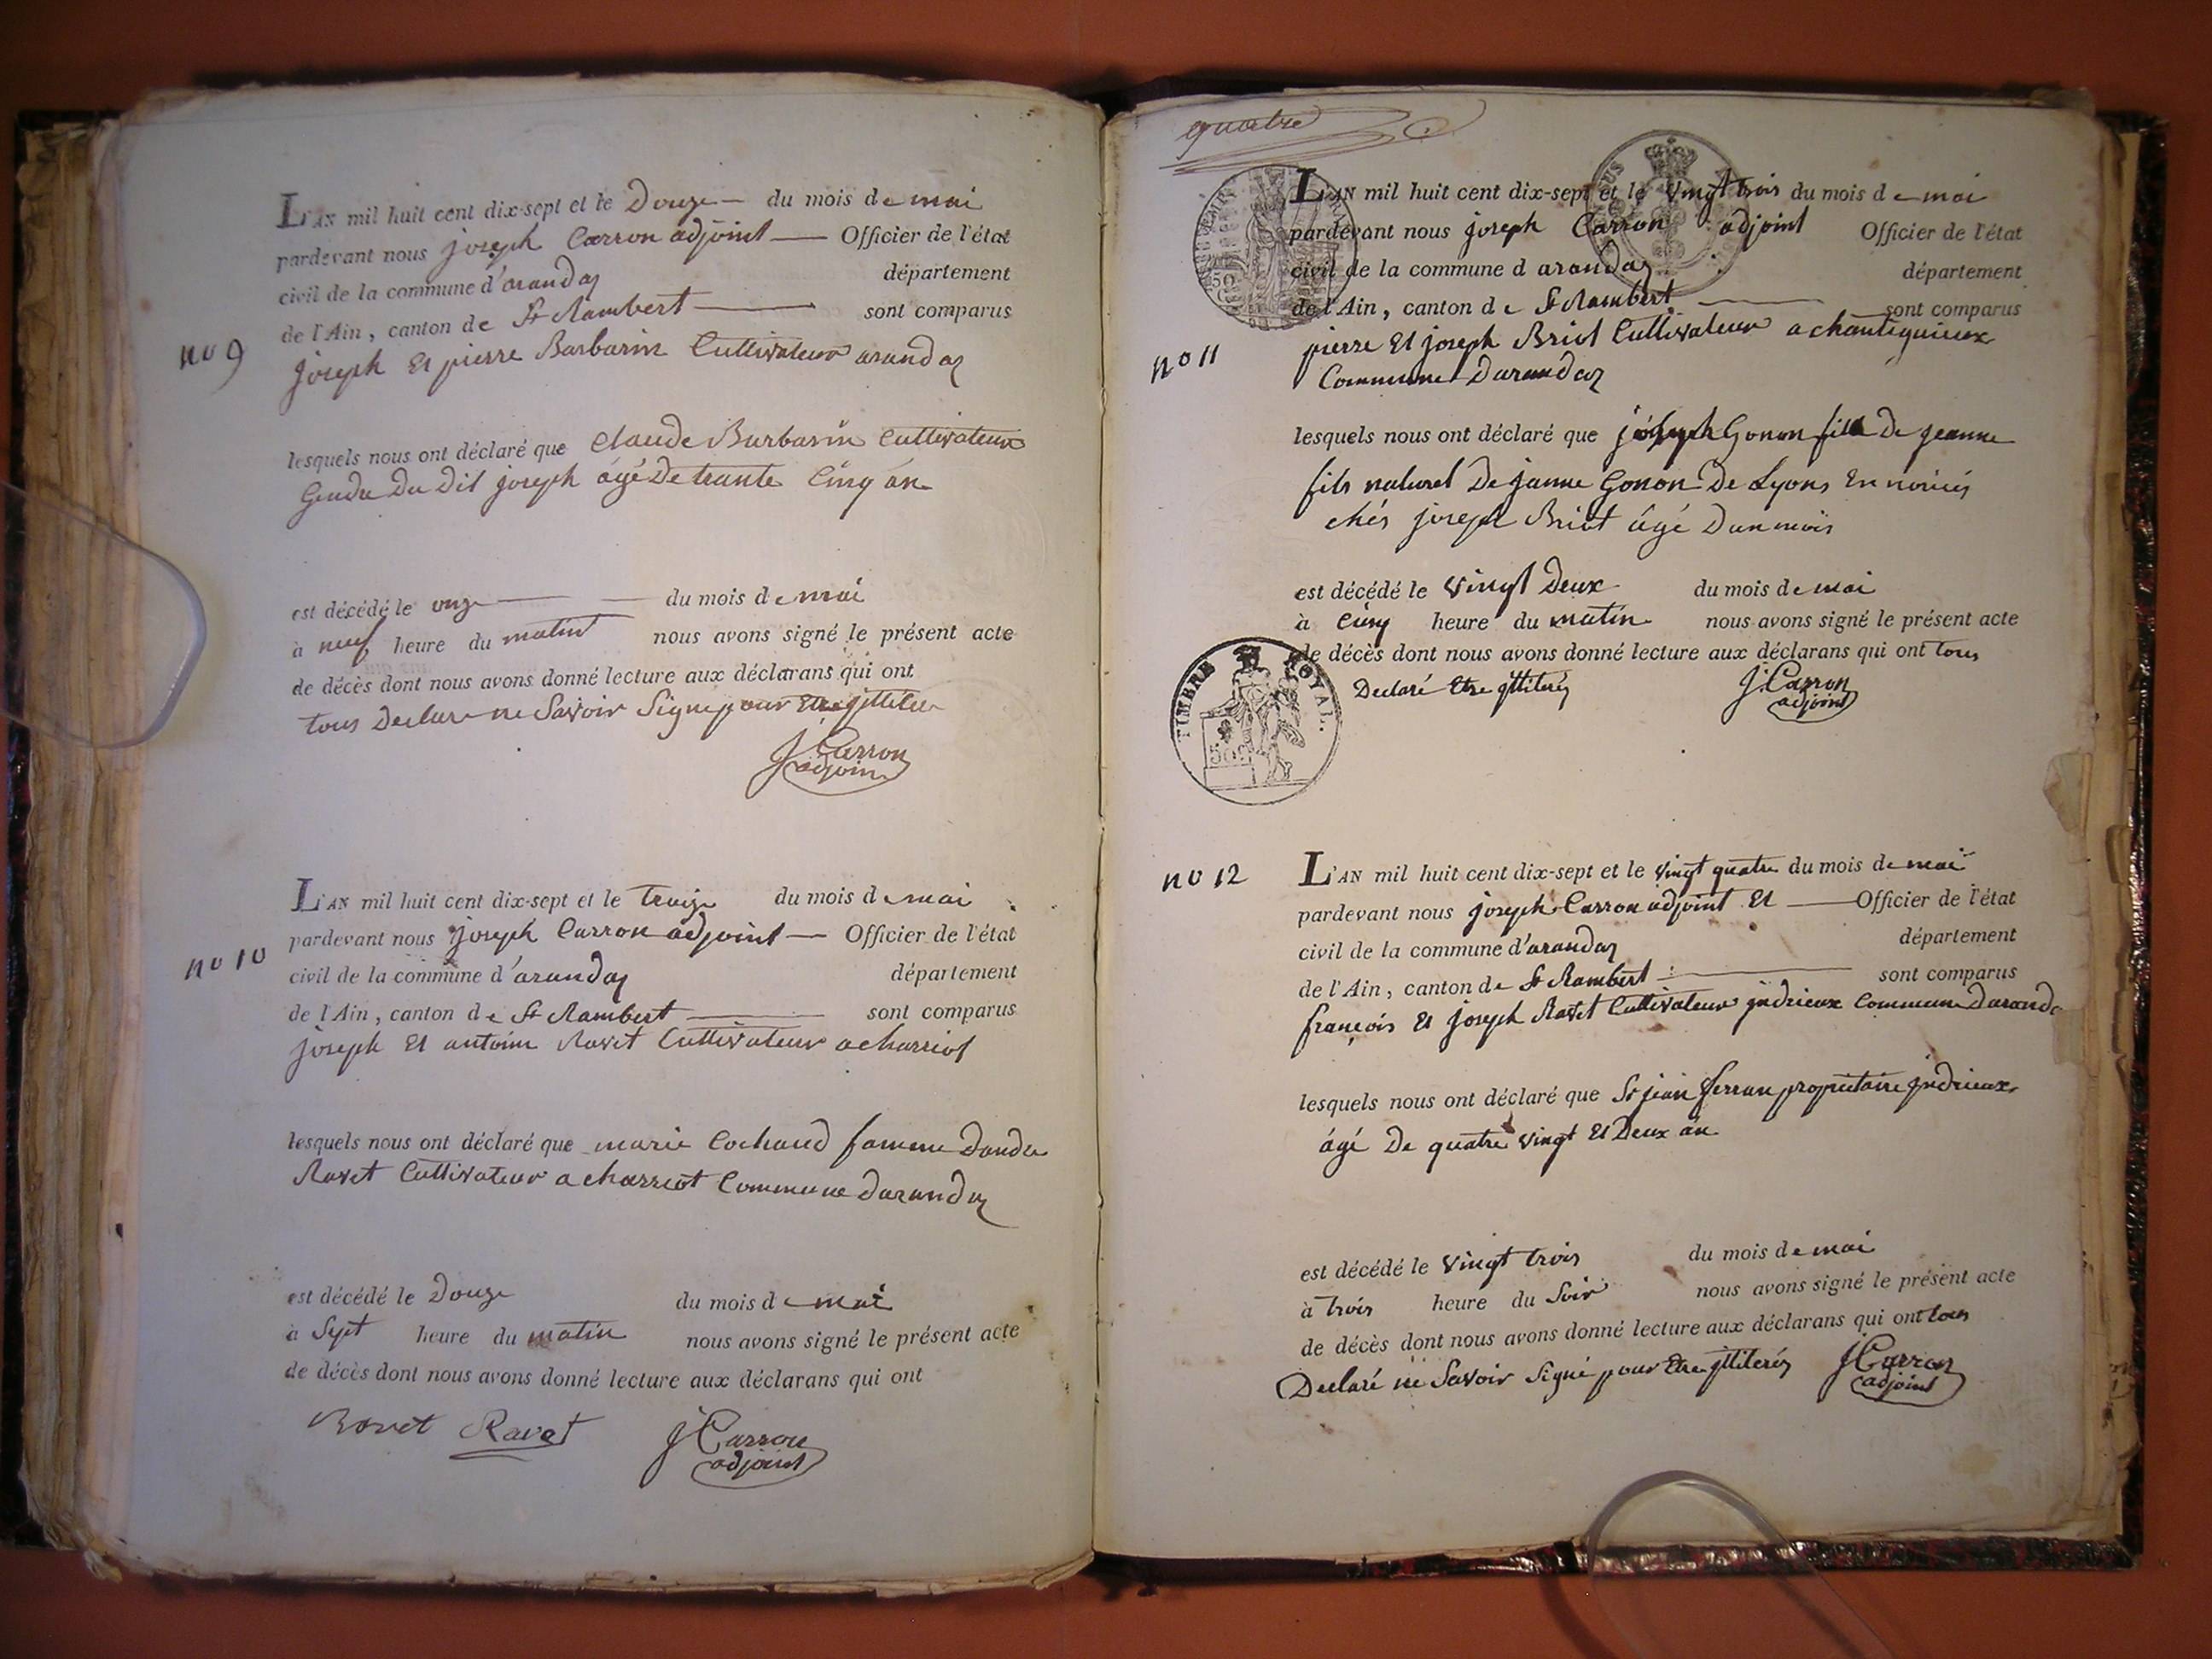 L'AN mil huit cent dix-sept et le Douze du mois de mai
pardevant nous joseph Carron adjoint Officier de l'état
civil de la commune d'arandas département
de l'Ain, canton de St Rambert sont comparus
no 9
joseph Et pierre Barbarin Cultivateur arandas
lesquels nous ont déclaré que Claude Barbarin Cultivateur
Gendre Du Dit joseph âgé De trante Cinq an
est décédé le onze du mois de mai
à neuf heure du matin nous avons signé le présent acte
de décès dont nous avons donné lecture aux déclarans qui ont
tous Declare ne Savoir Signe pour Etre
J Carron
adjoin
L'AN mil huit cent dix-sept et le treize du mois de mai
pardevant nous joseph Carron adjoint Officier de l'état
no 10
civil de la commune d'arandas département
de l'Ain, canton de St Rambert sont comparus
joseph Et antoine Ravet Cultivateur a charriot
lesquels nous ont déclaré que marie Cochand famme Dandre
Ravet Cultivateur a charriot Commune Darandas
est décédé le Douze du mois de mai
à Sept heure du matin nous avons signé le présent acte
de décès dont nous avons donné lecture aux déclarans qui ont
Ravet Ravet J Carron
adjoint
quatre
L'AN mil huit cent dix-sept et le vingt trois du mois de mai
pardevant nous joseph Carron adjoint Officier de l'état
civil de la commune d arandas département
de l'Ain, canton de St Rambert sont comparus
no 11
pierre Et joseph Briot Cultivateur a chantiguieux
Commune Darandas
lesquels nous ont déclaré que joseph Gonon fille De jeanne
fils naturel De janne Gonon De Lyons En
chés joseph Briot âgé Dun mois
est décédé le vingt Deux du mois de mai
à Cinq heure du matin nous avons signé le présent acte
de décès dont nous avons donné lecture aux déclarans qui ont tous
Declaré Etre
J. Carron
adjoint
TIMBRE ROYAL.
50c
no 12
L'AN mil huit cent dix-sept et le vingt quatre du mois de mai
pardevant nous joseph Carron adjoint Et Officier de l'état
civil de la commune d'arandas département
de l'Ain, canton de St Rambert sont comparus
françois Et joseph Ravet Cultivateur jndrieux Commune Daranda
lesquels nous ont déclaré que Sr jean ferran propriétaire jndrieux
âgé De quatre vingt Et Deux an
est décédé le vingt trois du mois de mai
à trois heure du Soir nous avons signé le présent acte
de décès dont nous avons donné lecture aux déclarans qui ont tous
Declaré ne Savoir Signé pour Etre
J Carron
adjoint